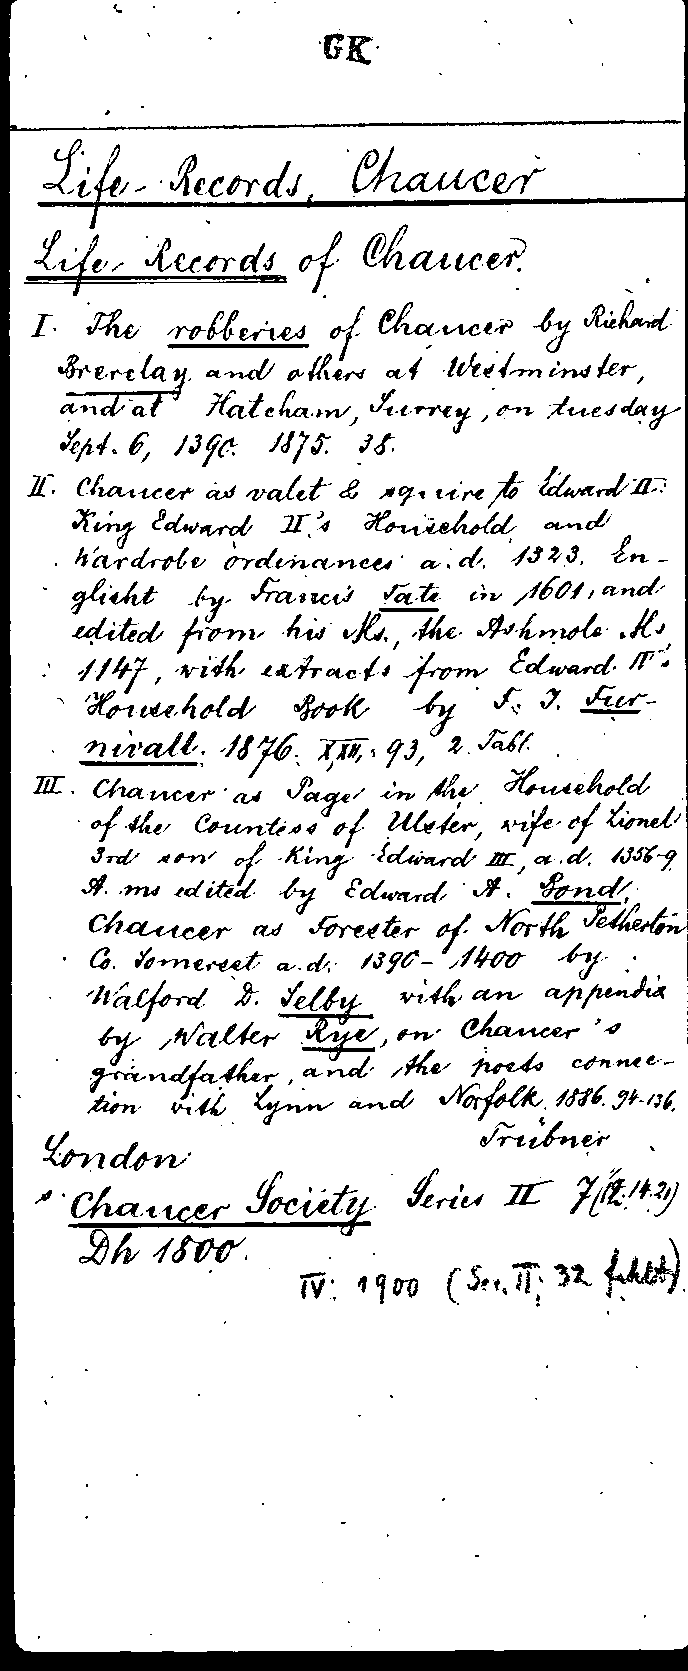 GK
Life-Records, Chaucer
Life-Records of Chaucer.
I. The robberies of Chaucer by Richard
Brerelay and others at Westminster,
and at Hatcham, Surrey, on tuesday
Sept. 6, 1390. 1875. 38.
II. Chaucer as valet & squire to Edward II:
King Edward II's Household and
Wardrobe ordinances a.d. 1323. En-
glisht by Francis Tate in 1601, and
edited from his Ms., the Ashmole Ms
1147, with extracts from Edward IV's
Household Book by F. J. Fur-
nivall. 1876. X,XII, 93, 2 Tabl.
III. Chaucer as Page in the Household
of the Countess of Ulster, wife of Lionel
3rd son of King Edward III, a.d. 1356-9
A. ms edited by Edward A. Bond.
Chaucer as Forester of North Petherton
Co. Somerset a.d. 1390-1400 by
Walford D. Selby with an appendix
by Walter Rye, on Chaucer's
grandfather, and the poets connec-
tion with Lynn and Norfolk. 1886. 94-136.
Trübner
London
s. Chaucer Society Series II 14. 21)
Dh 1800.
IV: 1900 (Ser. II; 32 fehlt)